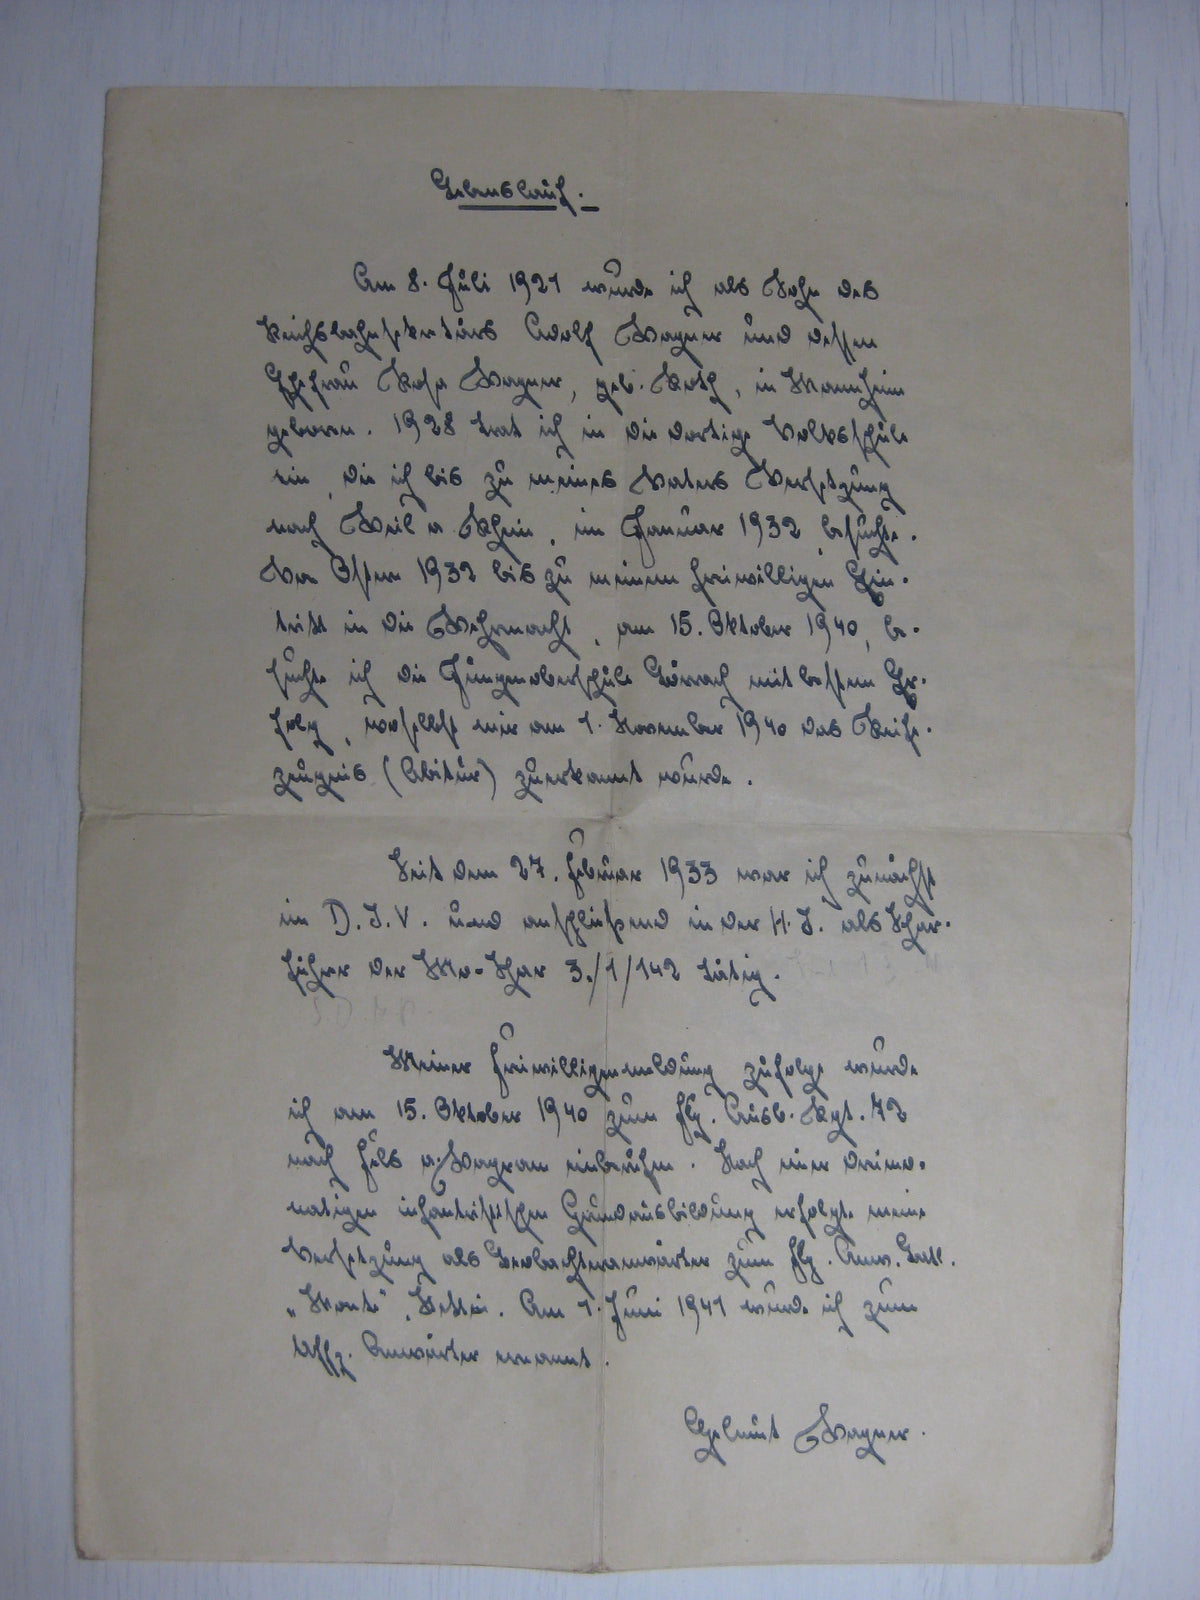 Lebenslauf.
Am 8. Juli 1921 wurde ich als Sohn des
Reichsbahnsekretärs Adolf Wagner und dessen
Ehefrau Rosa Wagner, geb. Roth, in Mannheim
geboren. 1928 trat ich in die dortige Volksschule
ein, die ich bis zu meines Vaters Versetzung
nach Weil a. Rhein, im Januar 1932, besuchte.
Von Ostern 1932 bis zu meinem freiwilligen Ein-
tritt in die Wehrmacht, am 15. Oktober 1940, be-
suchte ich die Jungenoberschule Lörrach mit bestem Er-
folg, woselbst mir am 1. November 1940 das Reife-
zeugnis (Abitur) zuerkannt wurde.
Seit dem 27. Februar 1933 war ich zunächst
im D. J. V. und anschließend in der H. J. als Schar-
führer der Mo-Schar 3./1/142 tätig.
Meiner Freiwilligenmeldung zufolge wurde
ich am 15. Oktober 1940 zum Flg. Ausb. Rgt. 72
nach Fels a. Wagram einberufen. Nach einer dreimo-
natigen infanteristischen Grundausbildung erfolgte meine
Versetzung als Beobachteranwärter zum Flg. Anw. Batl.
Stettin. Am 1. Juni 1941 wurde ich zum
Uffz. Anwärter ernannt.
Helmut Wagner.